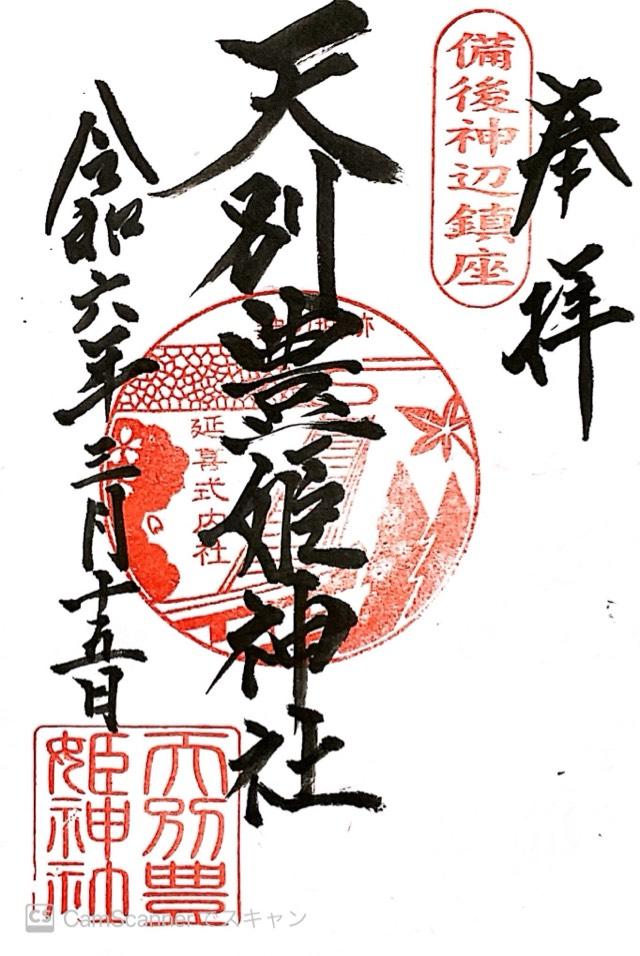 奉拝
備後神辺鎮座
天別豊姫神社
延喜式内社
令和六年三月十五日
天別豊
姫神社
CS CamScannerでスキャン